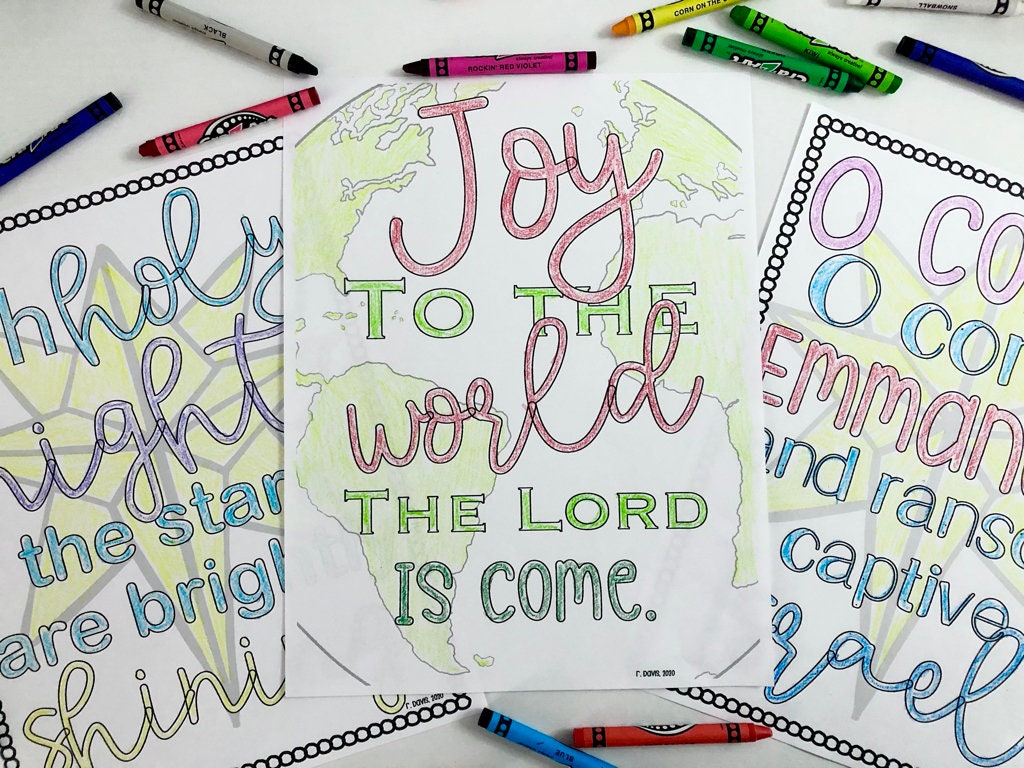 BLACK
ROCKIN' RED VIOLET
CORN ON THE
KIWI
SNOWBALL
Joy
TO THE
world
THE LORD
IS COME.
r. Davis, 2020
holy
night
the star
are brigh
shini
r. Davis, 2020
O co
O com
Emman
and ranso
captive
rael
BLUE